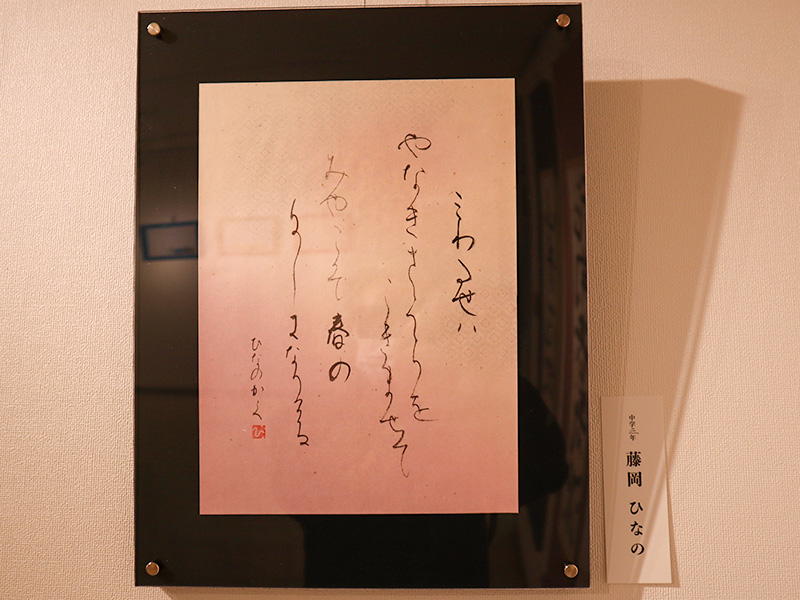 みわたせハ
やなきさくらを
こきませて
みやこそ春の
にしきなりける
ひなのかく
ひ
中学三年
藤岡 ひなの